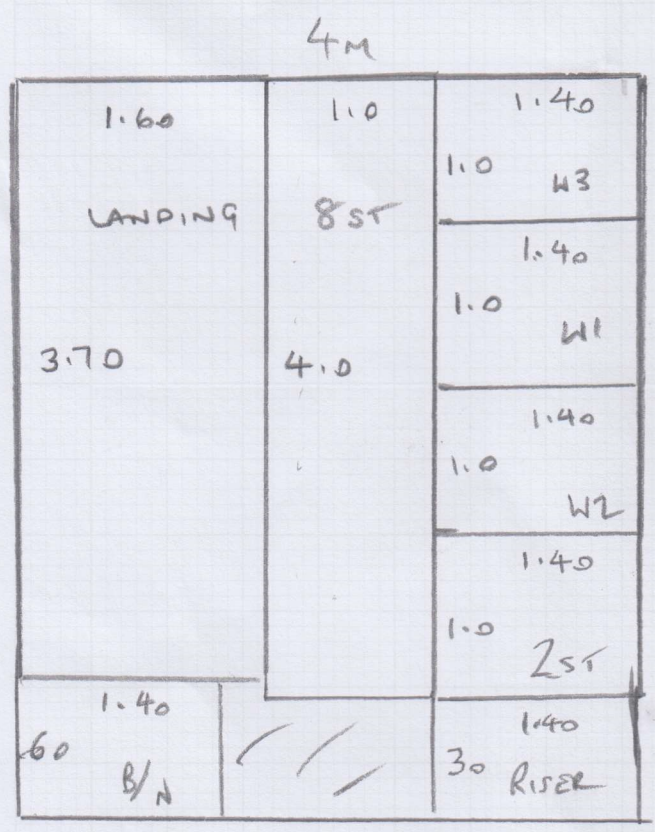 4M
1.60
LANDING
3.70
1.0
8 ST
4.0
1.40
1.0 W3
1.40
1.0 W1
1.40
1.0 W2
1.40
1.0 2 ST
1.40
60 B/N
1.40
30 RISER